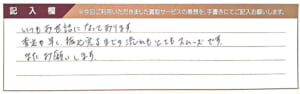 記入欄 ※今回ご利用いただきました買取サービスの感想を、手書きにてご記入お願いします。
いつもお世話になっております。
査定も早く、振込完了までの流れもとてもスムーズです。
またお願いします。